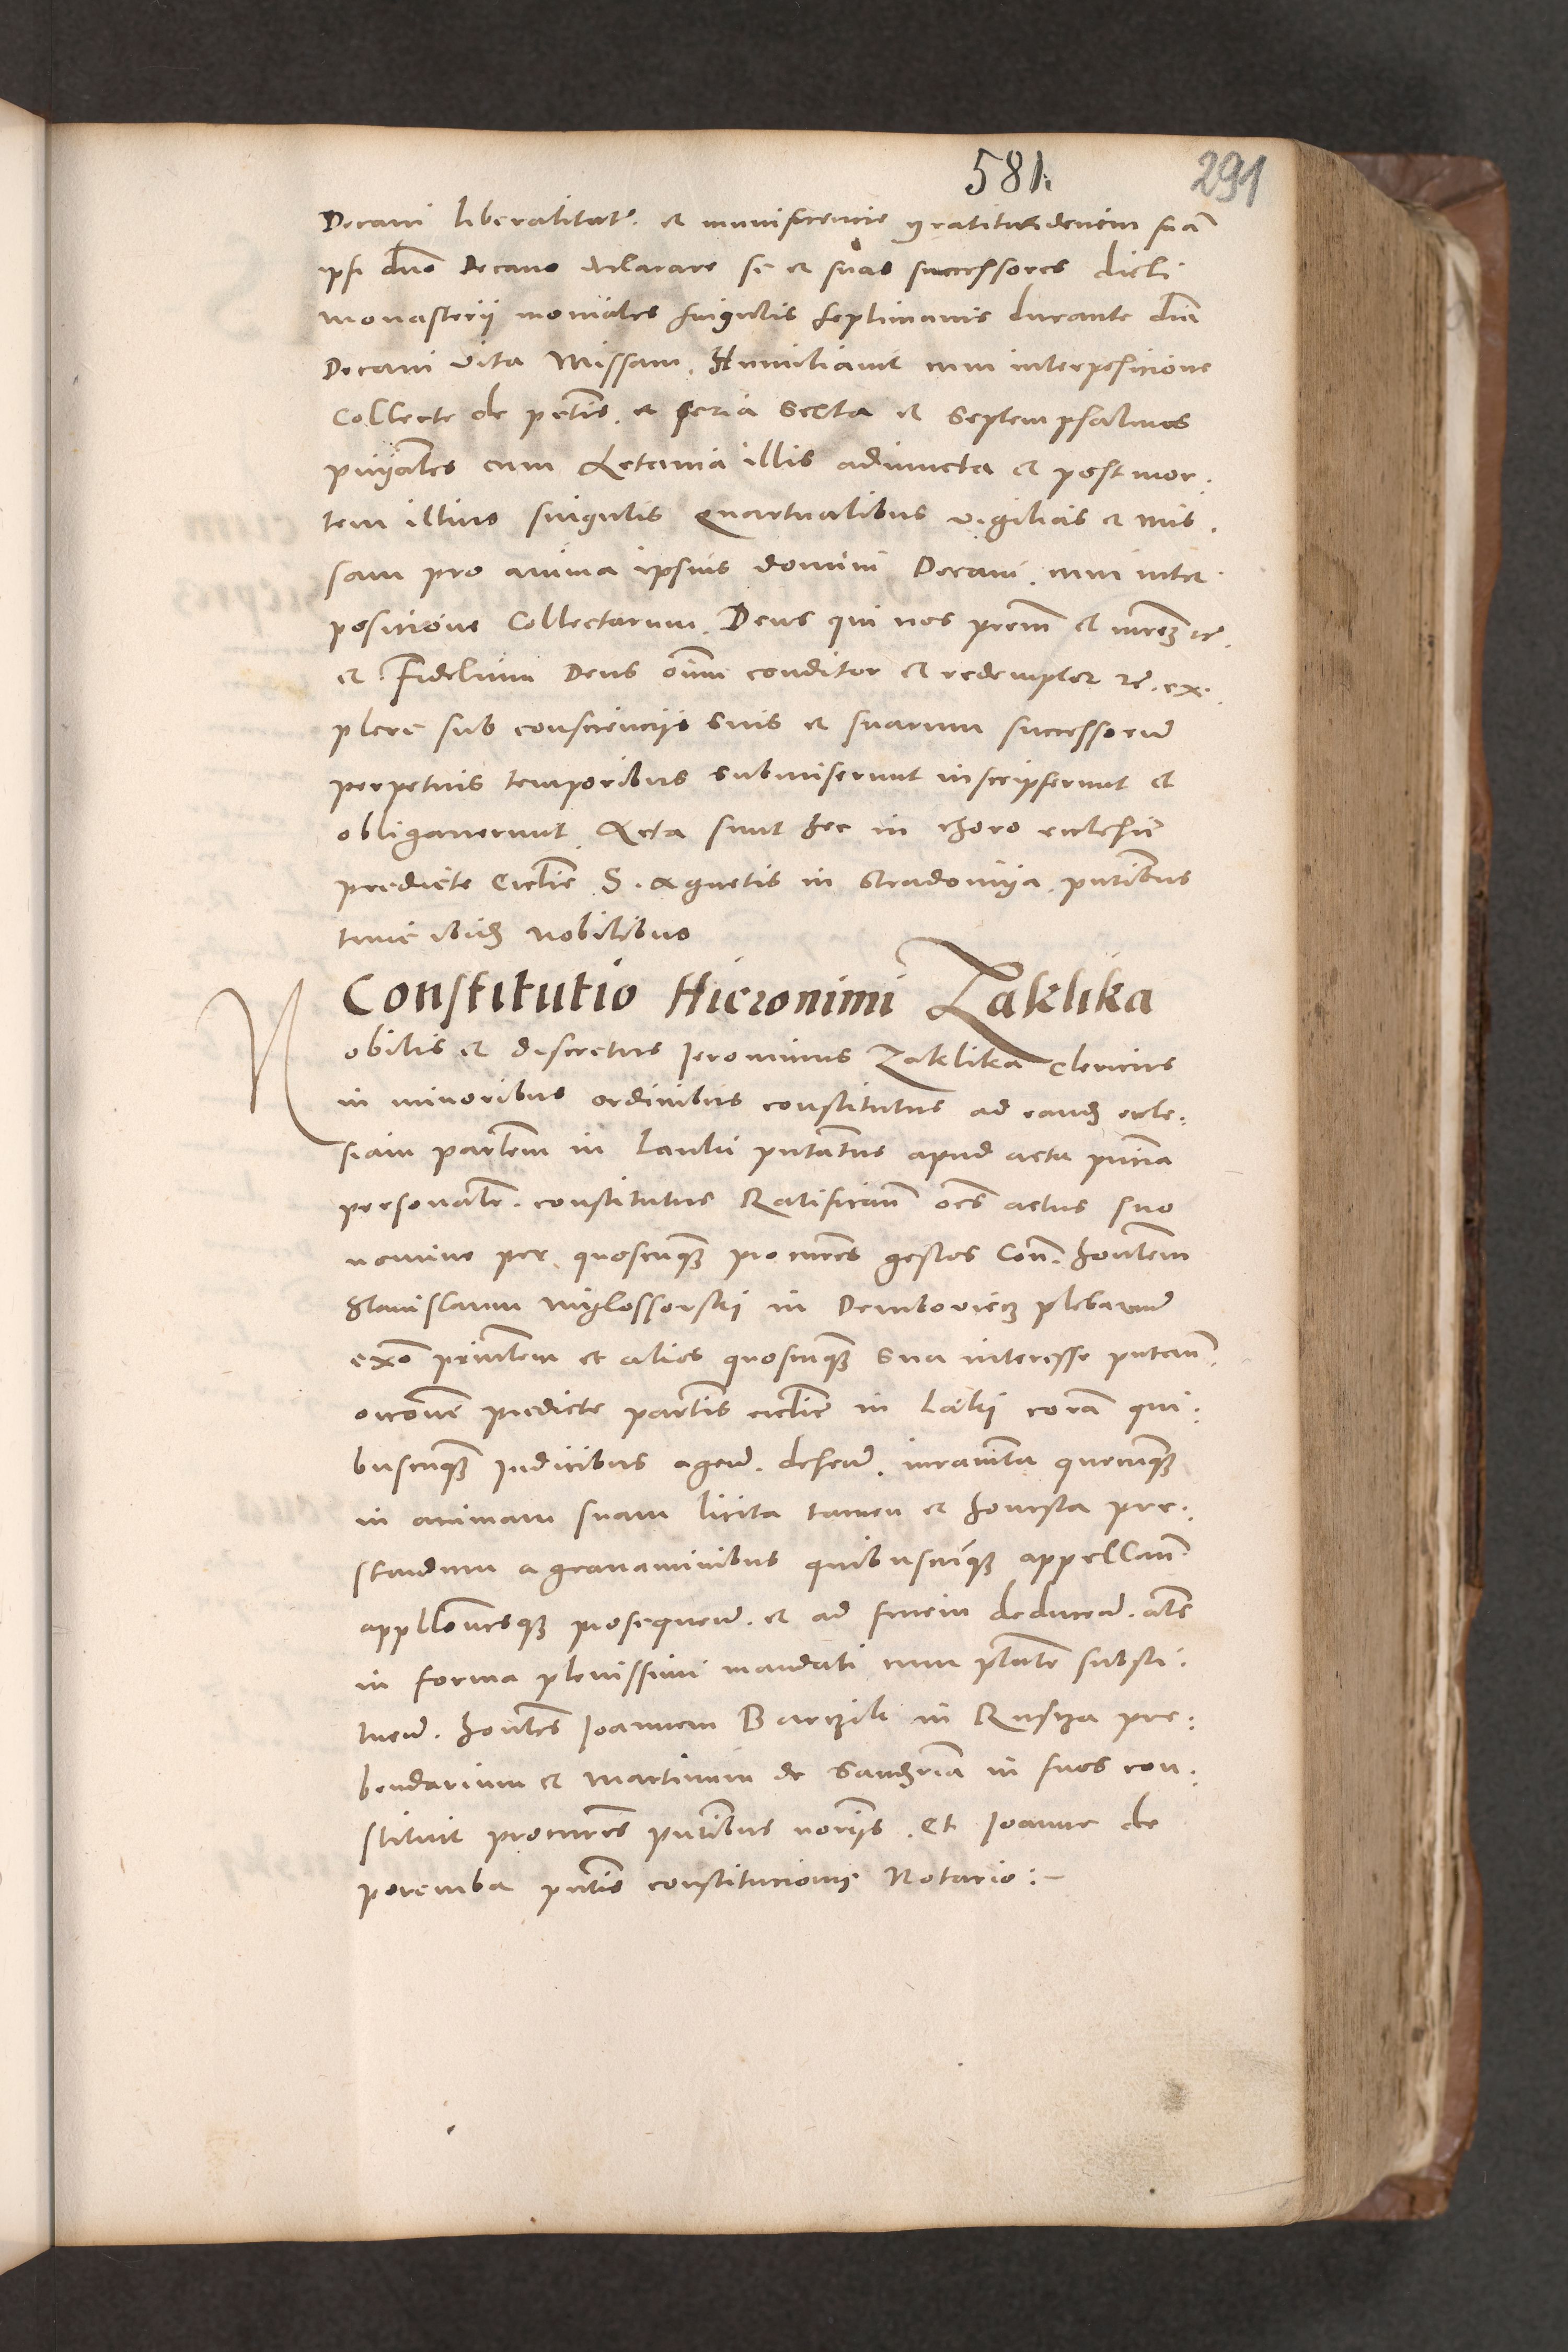 581.
291
Decani liberalitat. et munificencie gratitudenem suā
ipsi dno Decano declarare se et suas successores dicti
monasterii moniales singulis septimanis durante dni
Decani vita Missam. Humiliavit cum interposicione
Collecte de pctis. et feria Sexta et Septem psalmos
pnijales cum Letania illis adiuncta et post mor.
tem illius singulis quartualibus vigilias et mis.
sam pro anima ipsius domini Decani. cum inter
posicione Collectarum. Deus qui nos prem et mrem etc.
et Fidelium Deus oim conditor et redemptor etc. ex.
plere sub consciencijs suis et suarum successorum
perpetuis temporibus submiserunt inscripserunt et
obligaverunt. Acta sunt hec in choro ecclesie
predicte Ecclie S. Agnetis in Stradomija. pntibus
tunc ibidem nobilibus
Constitutio Hieronimi Zaklika
Nobilis et discretus Jeronimus Zaklika clericus
in minoribus ordinibus constitutus ad eandem eccle.
siam parlem in Lanki pntatus apud acta pntia
personalr. constitutus Ratificavit oes actus suo
nomine per quoscunqz procures gestos Con. honlem
Stanislaum Myslossowski in Demboviecz plebanum
exo prntem et alios quoscunqz sua interesse putan.
occone predicte parlis ecclie in Lāki corā qui.
buscunqz Judicibus agend. defend. iuramta quecunqz
in animam suam licita tamen et honesta pre.
standum a gravaminibus quibuscunqz appelland.
appellonesqz prosequend. et ad finem deducend. als
in forma plenissimi mandati cum ptate substi.
tuend. honles Joannem Barczik in Rusiza pre.
bendarium et Martinum de Sandomia in suos con.
stituit procures pntibus norijs. Et Joanne de
poremba pntis constitucionis Notario:-